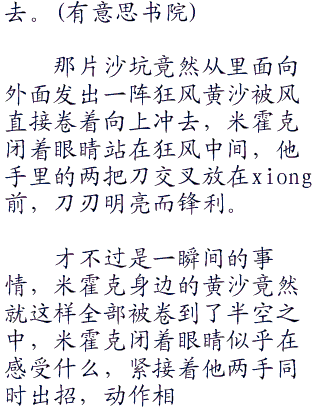 去。(有意思书院)
那片沙坑竟然从里面向
外面发出一阵狂风黄沙被风
直接卷着向上冲去，米霍克
闭着眼睛站在狂风中间，他
手里的两把刀交叉放在xiong
前，刀刃明亮而锋利。
才不过是一瞬间的事
情，米霍克身边的黄沙竟然
就这样全部被卷到了半空之
中，米霍克闭着眼睛似乎在
感受什么，紧接着他两手同
时出招，动作相